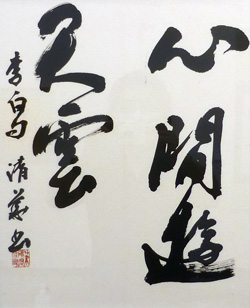 心閒遊
天雲
李白句 清書